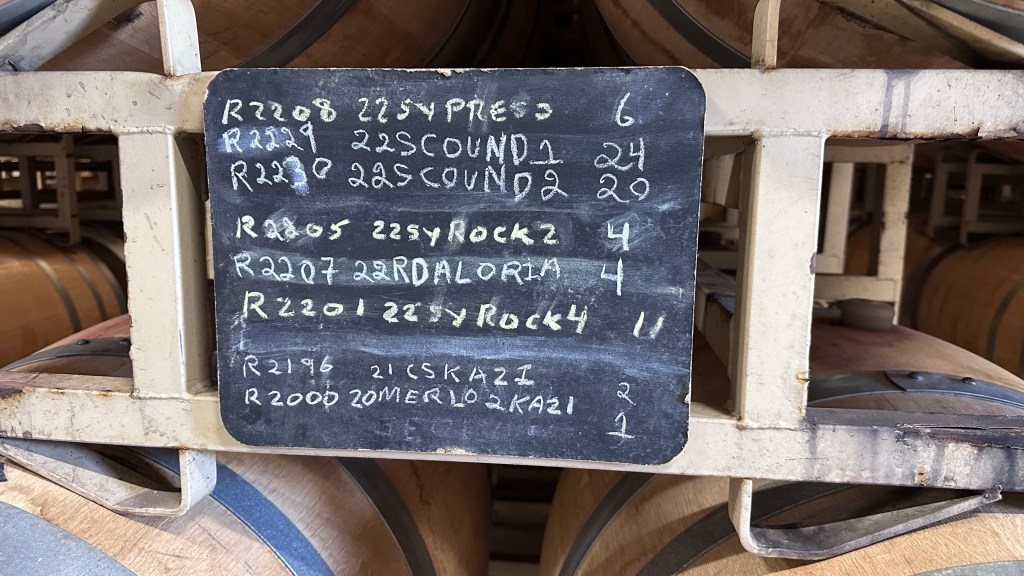 R2208 22SYPRESS 6
R2229 22SCOUND1 24
22SCOUND2 20
R2205 22SyRock2 4
R2207 22RDALORIA 4
R2201 22SyRock4 11
R2196 21CSKAZI 2
R2000 20MERLO2KAZI 1